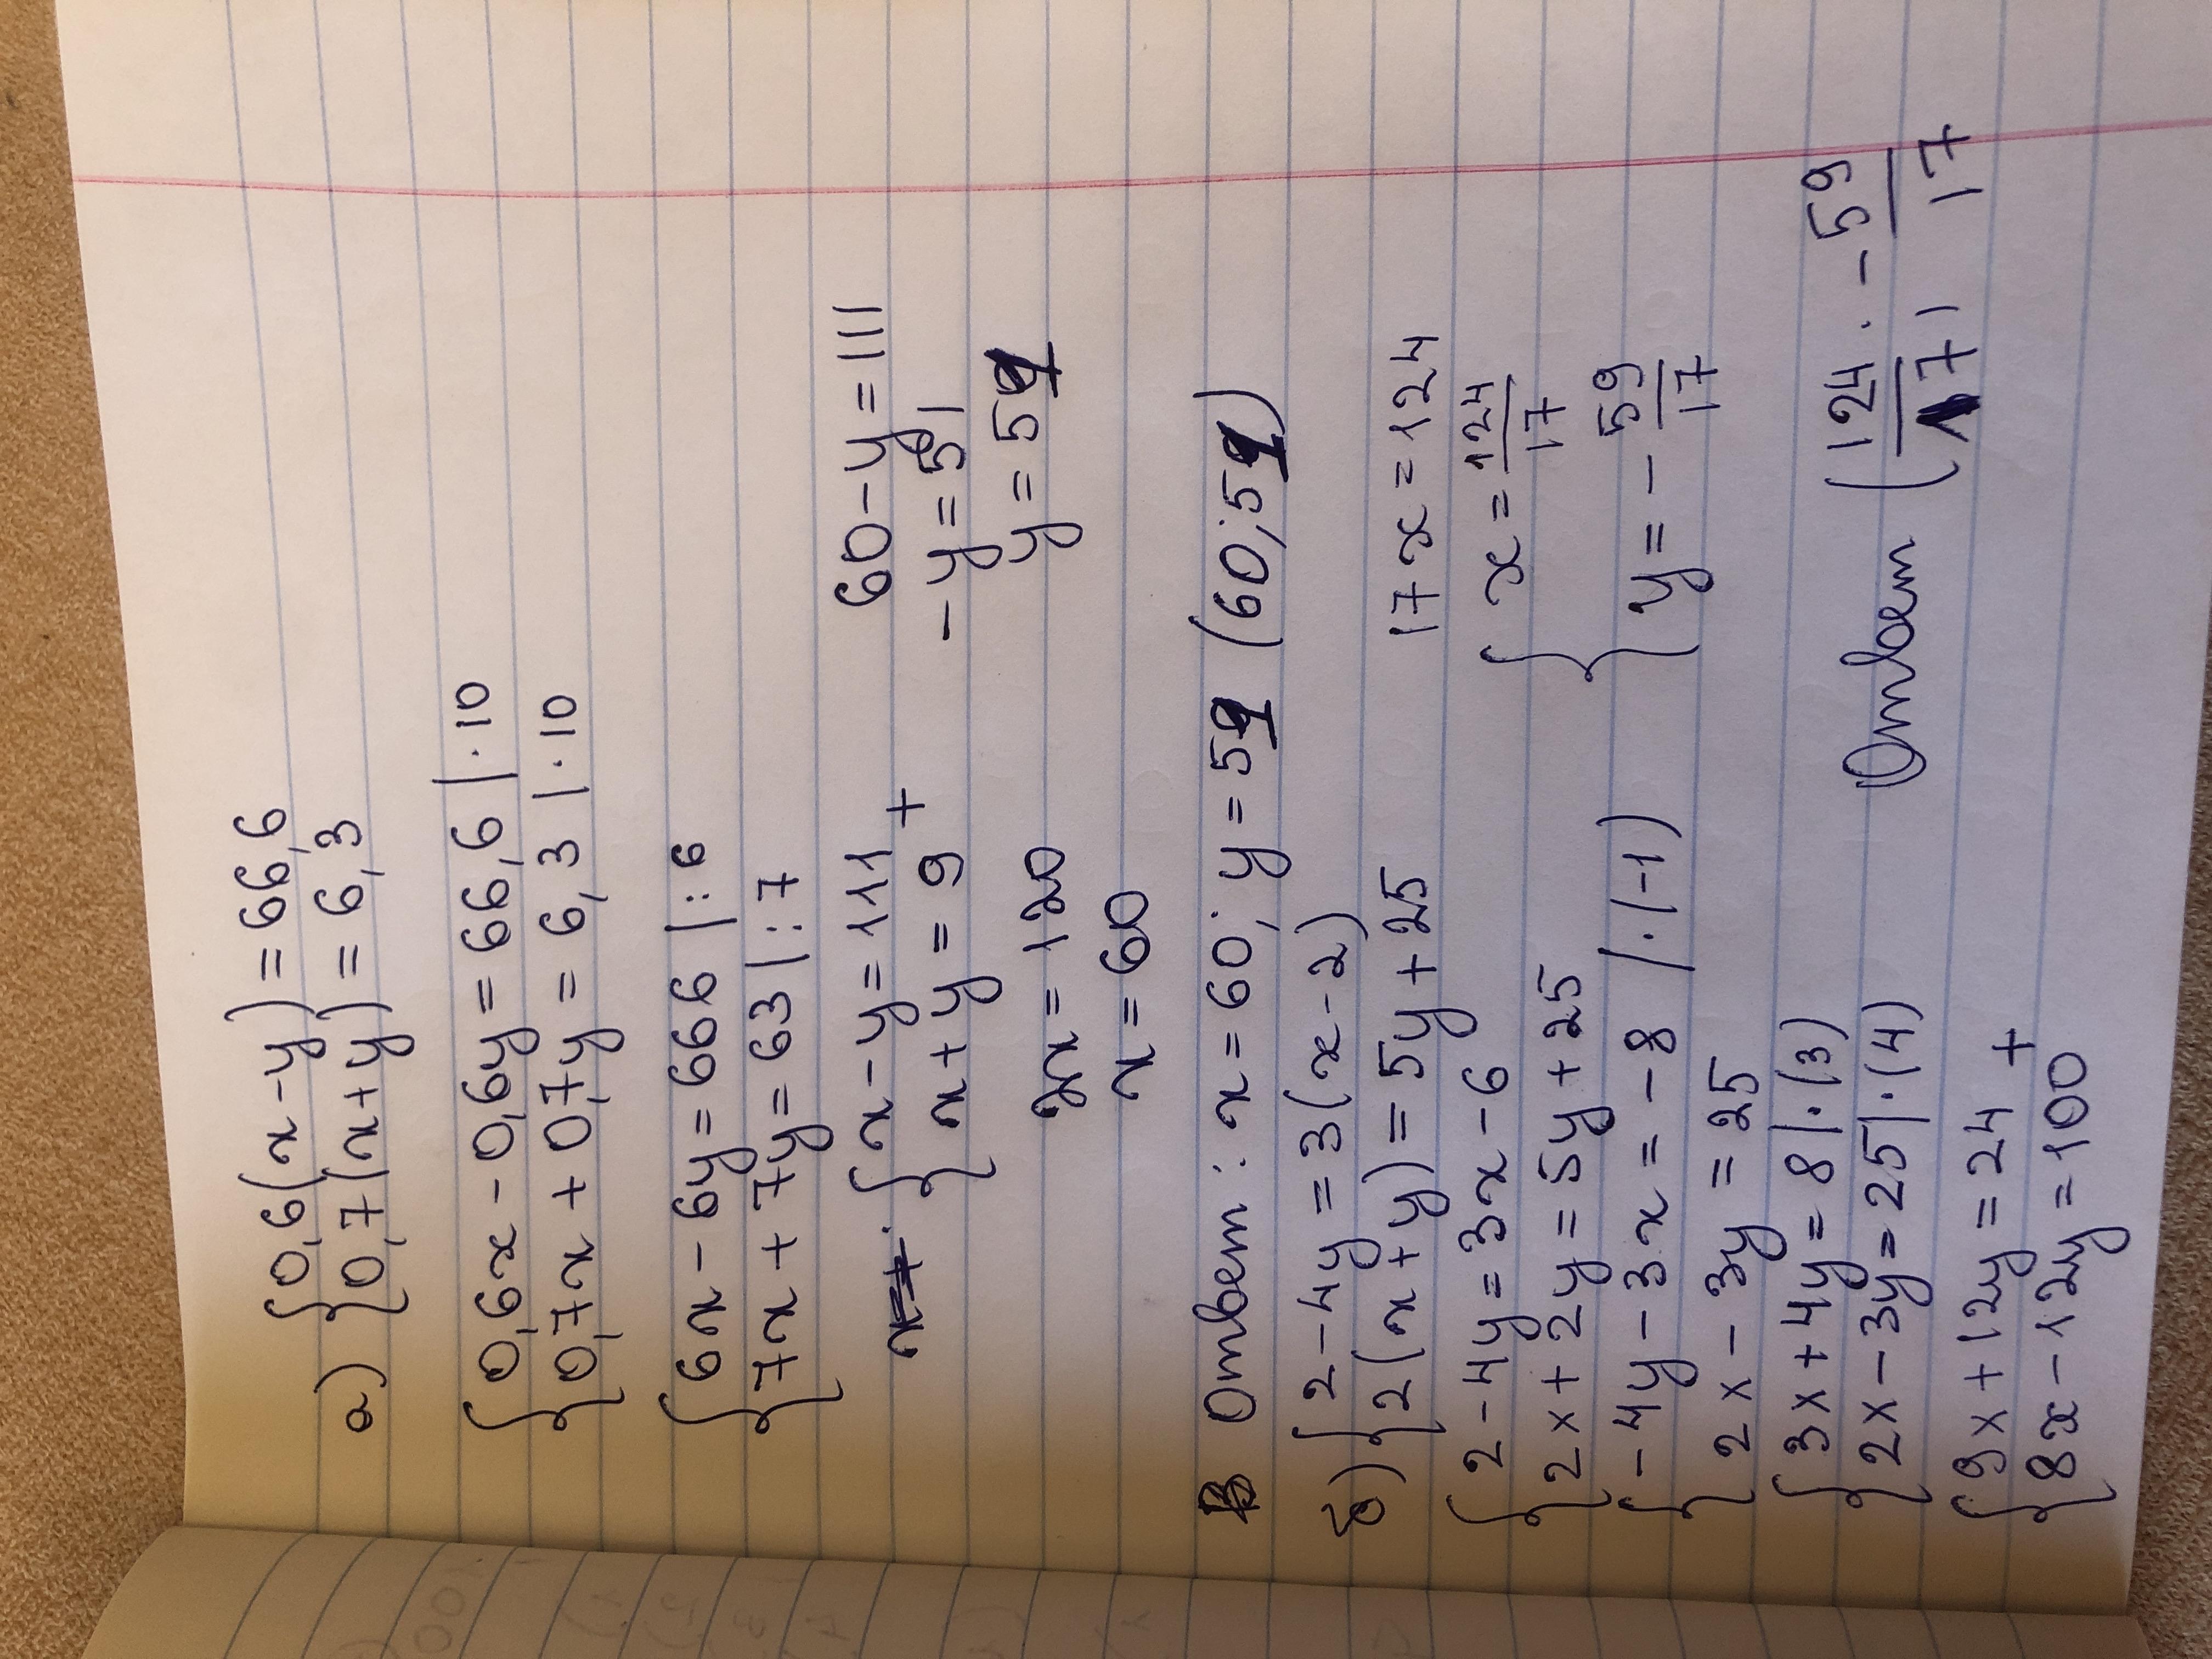 а) {0,6(x-y) = 66,6
{0,7(x+y) = 6,3
{0,6x - 0,6y = 66,6 |·10
{0,7x + 0,7y = 6,3 |·10
{6x - 6y = 666 |:6
{7x + 7y = 63 |:7
{x - y = 111 +
{x + y = 9
2x = 120
x = 60
60 - y = 111
-y = 51
y = 51
Ответ: x = 60; y = 51 (60; 51)
б) {2 - 4y = 3(x - 2)
{2(x+y) = 5y + 25
{2 - 4y = 3x - 6
{2x + 2y = 5y + 25
{-4y - 3x = -8 |·(-1)
{2x - 3y = 25
{3x + 4y = 8 |·(3)
{2x - 3y = 25 |·(4)
{9x + 12y = 24 +
{8x - 12y = 100
17x = 124
{x = 124/17
{y = - 59/17
Ответ (124/17; - 59/17